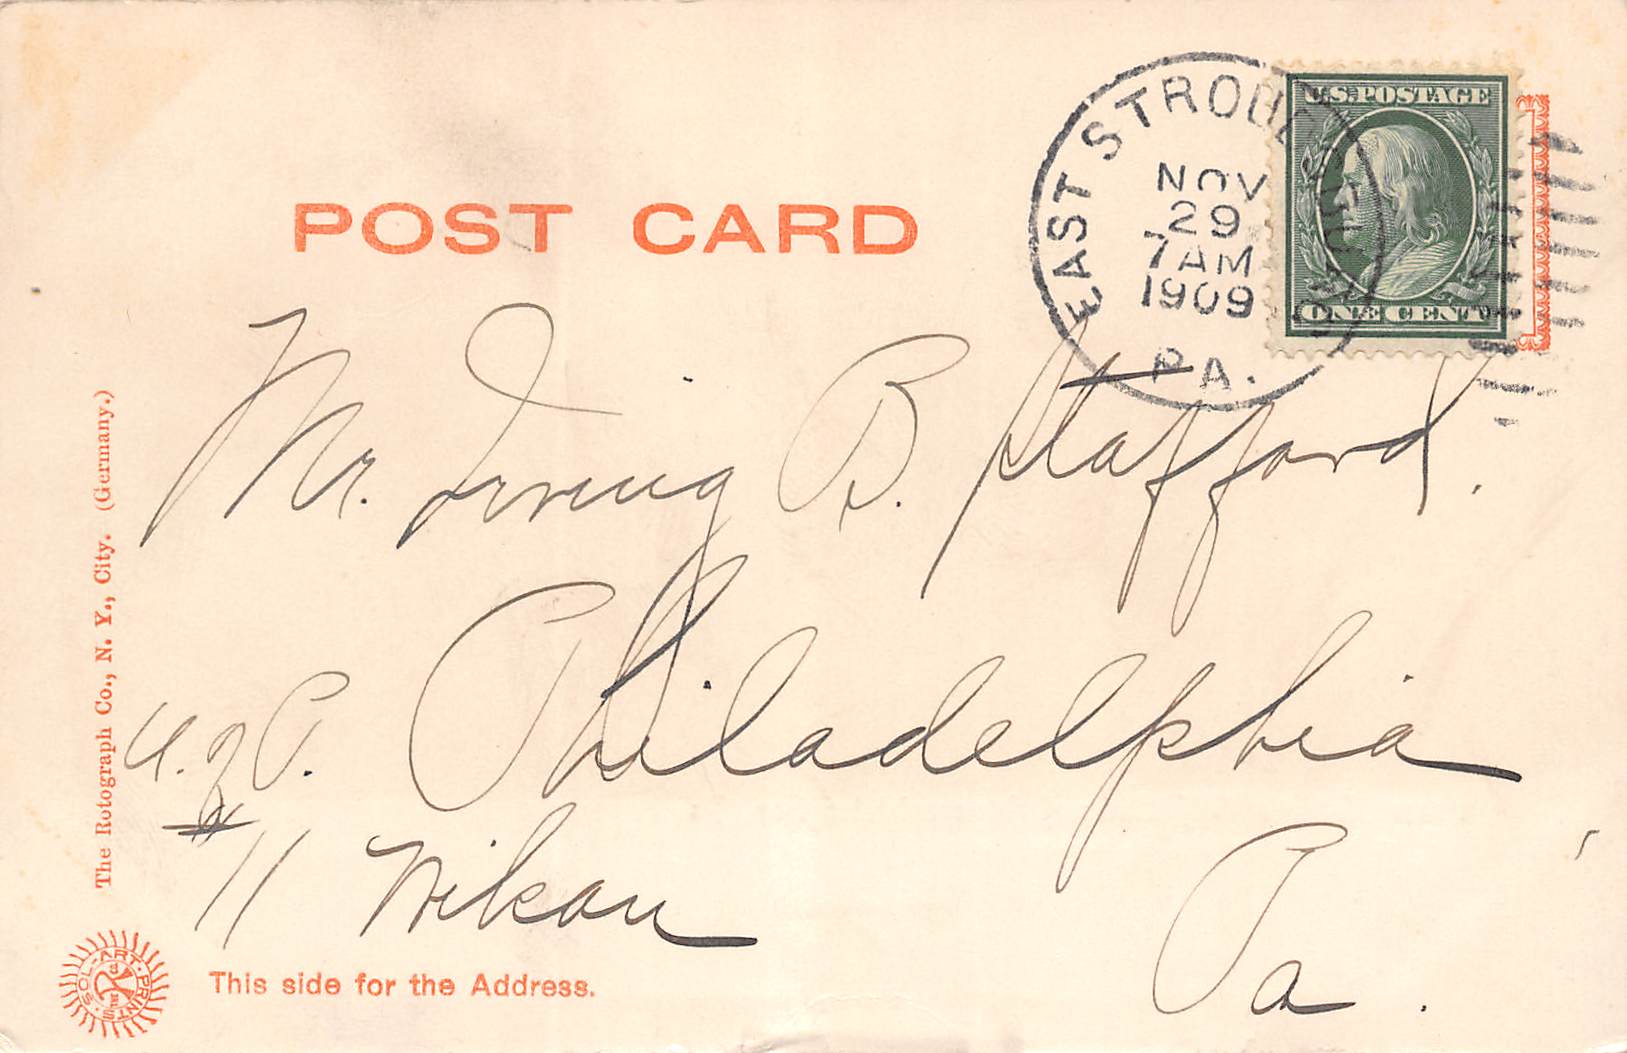 POST CARD
EAST STROUDSBURG
NOV
29
7 AM
1909
PA.
U.S. POSTAGE
ONE CENT
Mr. Irving B. Stafford.
Philadelphia
Pa.
U. of P.
#11 Wilson
The Rotograph Co., N. Y., City. (Germany.)
SOL-ART PRINTS
This side for the Address.